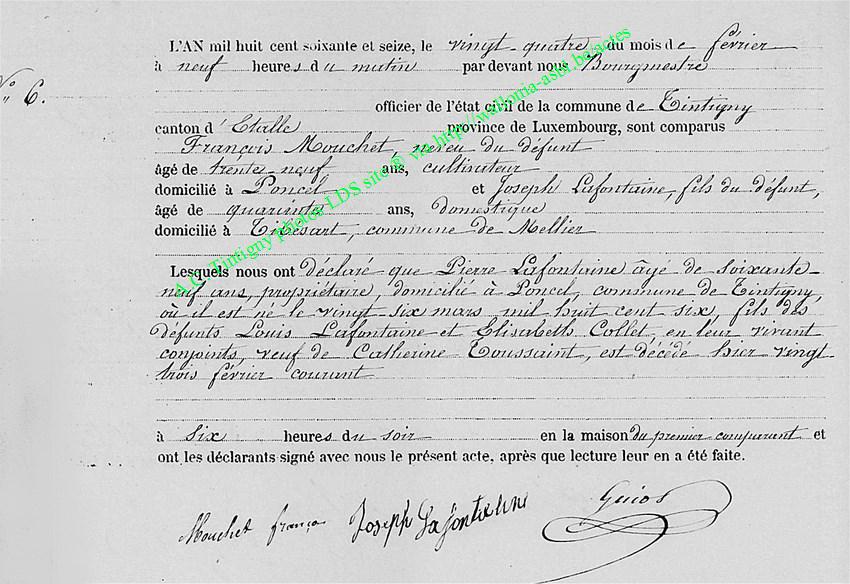 L'AN mil huit cent soixante et seize, le vingt-quatre du mois de février
à neuf heures du matin par devant nous Bourgmestre
N° 6.
officier de l'état civil de la commune de Tintigny
canton d'Etalle province de Luxembourg, sont comparus
François Mouchet, neveu du défunt
âgé de trente-neuf ans, cultivateur
domicilié à Poncel et Joseph Lafontaine, fils du défunt,
âgé de quarante ans, domestique
domicilié à Thibésart, commune de Mellier
Lesquels nous ont déclaré que Pierre Lafontaine âgé de soixante-
neuf ans, propriétaire, domicilié à Poncel, commune de Tintigny,
où il est né le vingt-six mars mil huit cent six, fils des
défunts Louis Lafontaine et Elisabeth Collet, en leur vivant
conjoints, veuf de Catherine Toussaint, est décédé hier vingt
trois février courant
à six heures du soir en la maison du premier comparant et
ont les déclarants signé avec nous le présent acte, après que lecture leur en a été faite.
Mouchet françois Joseph Lafontaine Guios
A.C. Tintigny photos LDS site © via http://wallonia-asbl.be/actes